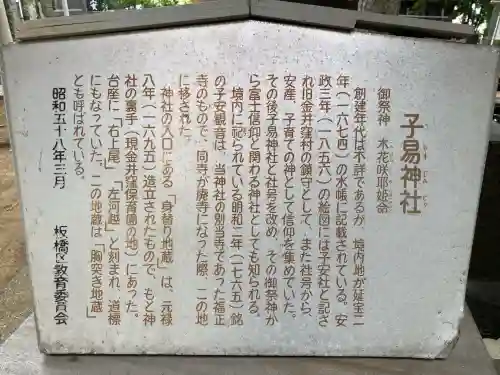 子易神社
こやすじんじゃ
御祭神　木花咲耶姫命
創建年代は不詳であるが、境内地が延宝二
年（一六七四）の水帳に記載されている。安
政三年（一八五六）の絵図には子安社と記さ
れ旧金井窪村の鎮守として、また社号から、
安産、子育ての神として信仰を集めていた。
その後子易神社と社号を改め、その御祭神か
ら富士信仰と関わる神社としても知られる。
境内に祀られている明和二年（一七六五）銘
の子安観音は、当神社の別当寺であった福正
寺のもので、同寺が廃寺になった際、この地
に移された。
神社の入口にある「身替り地蔵」は、元禄
八年（一六九五）造立されたもので、もと神
社の裏手（現金井窪保育園の地）にあった。
台座に「右上尾」　「左河越」と刻まれ、道標
にもなっていた。この地蔵は「胸突き地蔵」
とも呼ばれている。
昭和五十八年三月
板橋区教育委員会